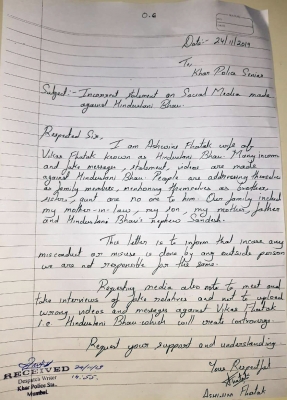 Date:- 24/11/2019
To
Khar Police Senior
Subject:- Incorrect statement on Social Media made
against Hindustani Bhau.
Respected Sir,
I am Ashwini Phatak wife of
Vikas Phatak known as Hindustani Bhau. Many
and fake messages, statement, videos are made
against Hindustani Bhau. People are addressing themselves
as family members, mentioning themselves as brother,
sister, aunt are no one to him. Our family include
my mother-in-law, my son, my mother, father
and Hindustani Bhau's nephew Sandesh.
This letter is to inform that incase any
misconduct or misuse is done by any outside person
we are not responsible for the same.
Requesting media also not to meet and
take interviews of fake relatives and not to upload
wrong videos and messages against Vikas Phatak
i.e Hindustani Bhau which will create
Request your support and understanding.
RECEIVED 24/11/19
14.55.
Despatch Writer
Khar Police Stn.
Mumbai.
Yours Respectful
Ashwini Phatak